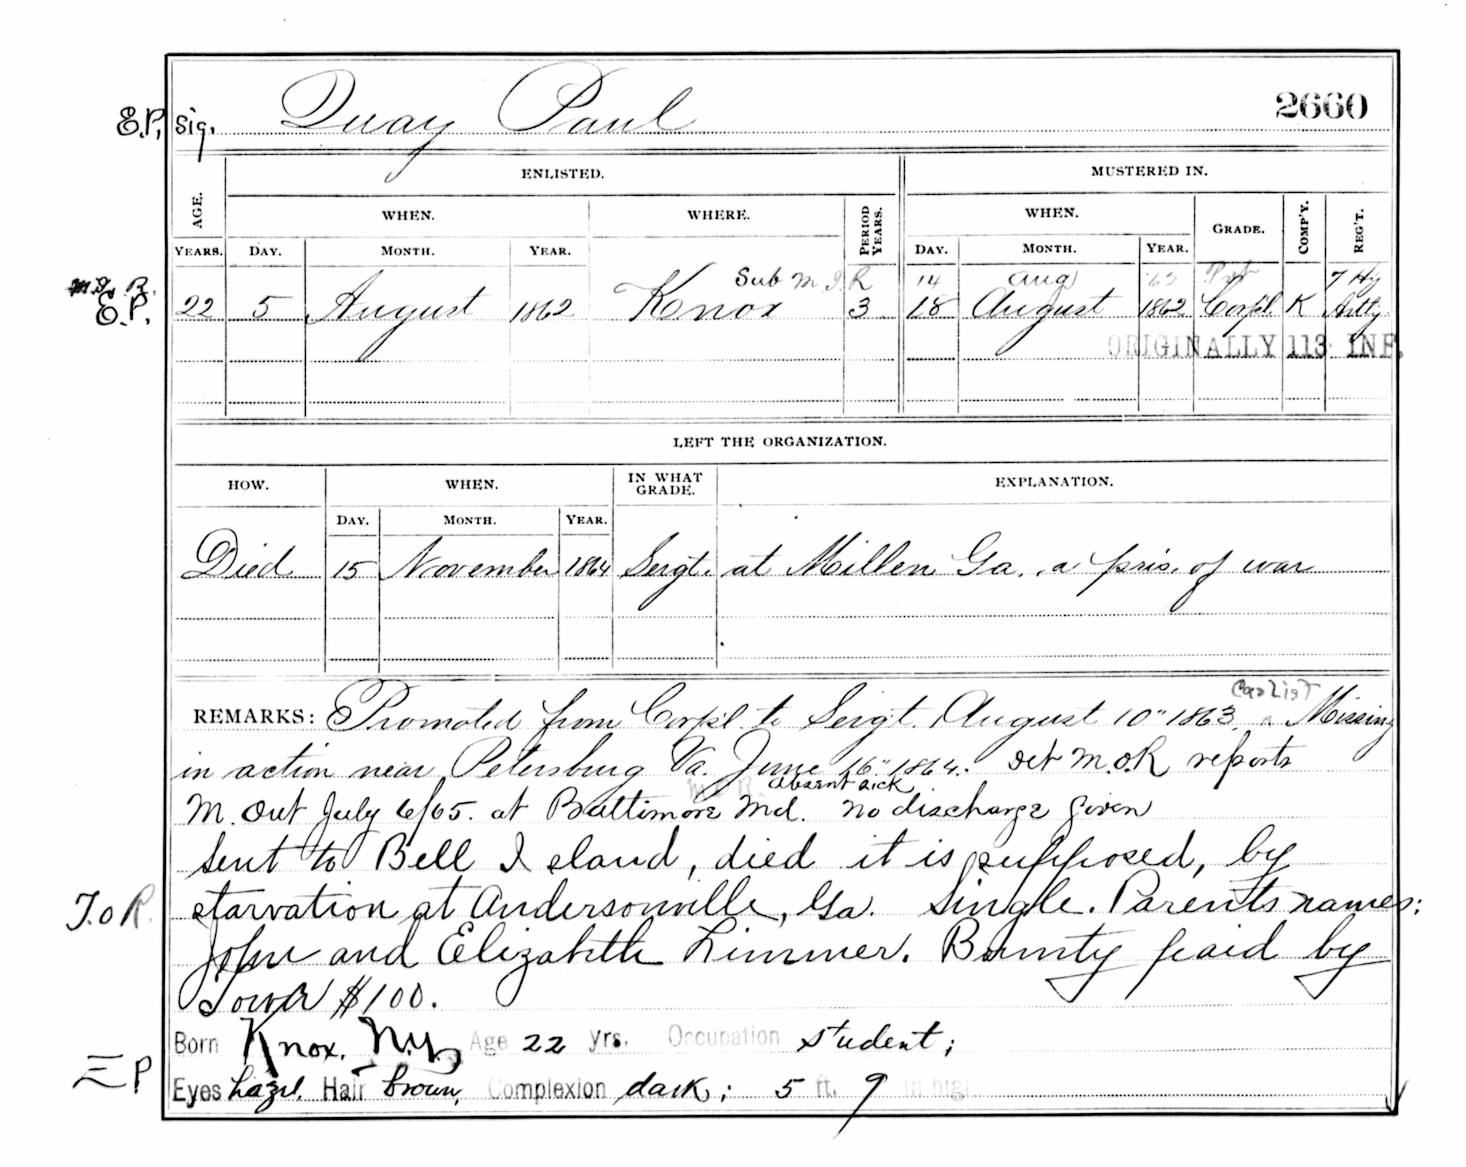 E.P. Sig. Quay Paul 2660
ENLISTED. MUSTERED IN.
AGE. WHEN. WHERE. PERIOD YEARS. WHEN. GRADE. COMP'Y. REG'T.
YEARS. DAY. MONTH. YEAR. DAY. MONTH. YEAR.
Sub M.I.R 14 Aug '62 Pvt 7 Hy
E.P. 22 5 August 1862 Knox 3 18 August 1862 Corpl. K Arty.
ORIGINALLY 113 INF.
LEFT THE ORGANIZATION.
HOW. WHEN. IN WHAT GRADE. EXPLANATION.
DAY. MONTH. YEAR.
Died 15 November 1864 Sergt. at Millen Ga., a pris. of war
REMARKS: Promoted from Corpl. to Sergt. August 10" 1863, Missing
in action near Petersburg Va. June 16" 1864. Det M.O.R reports
absent sick
M. Out July 6/65. at Baltimore Md. No discharge given
Sent to Bell Island, died it is supposed, by
T.o R. starvation at Andersonville, Ga. Single. Parents names:
John and Elizabeth Limmer. Bounty paid by
Town $100.
Born Knox, N.Y., Age 22 yrs. Occupation student;
E P Eyes hazel, Hair brown, Complexion dark; 5 ft. 9 in high